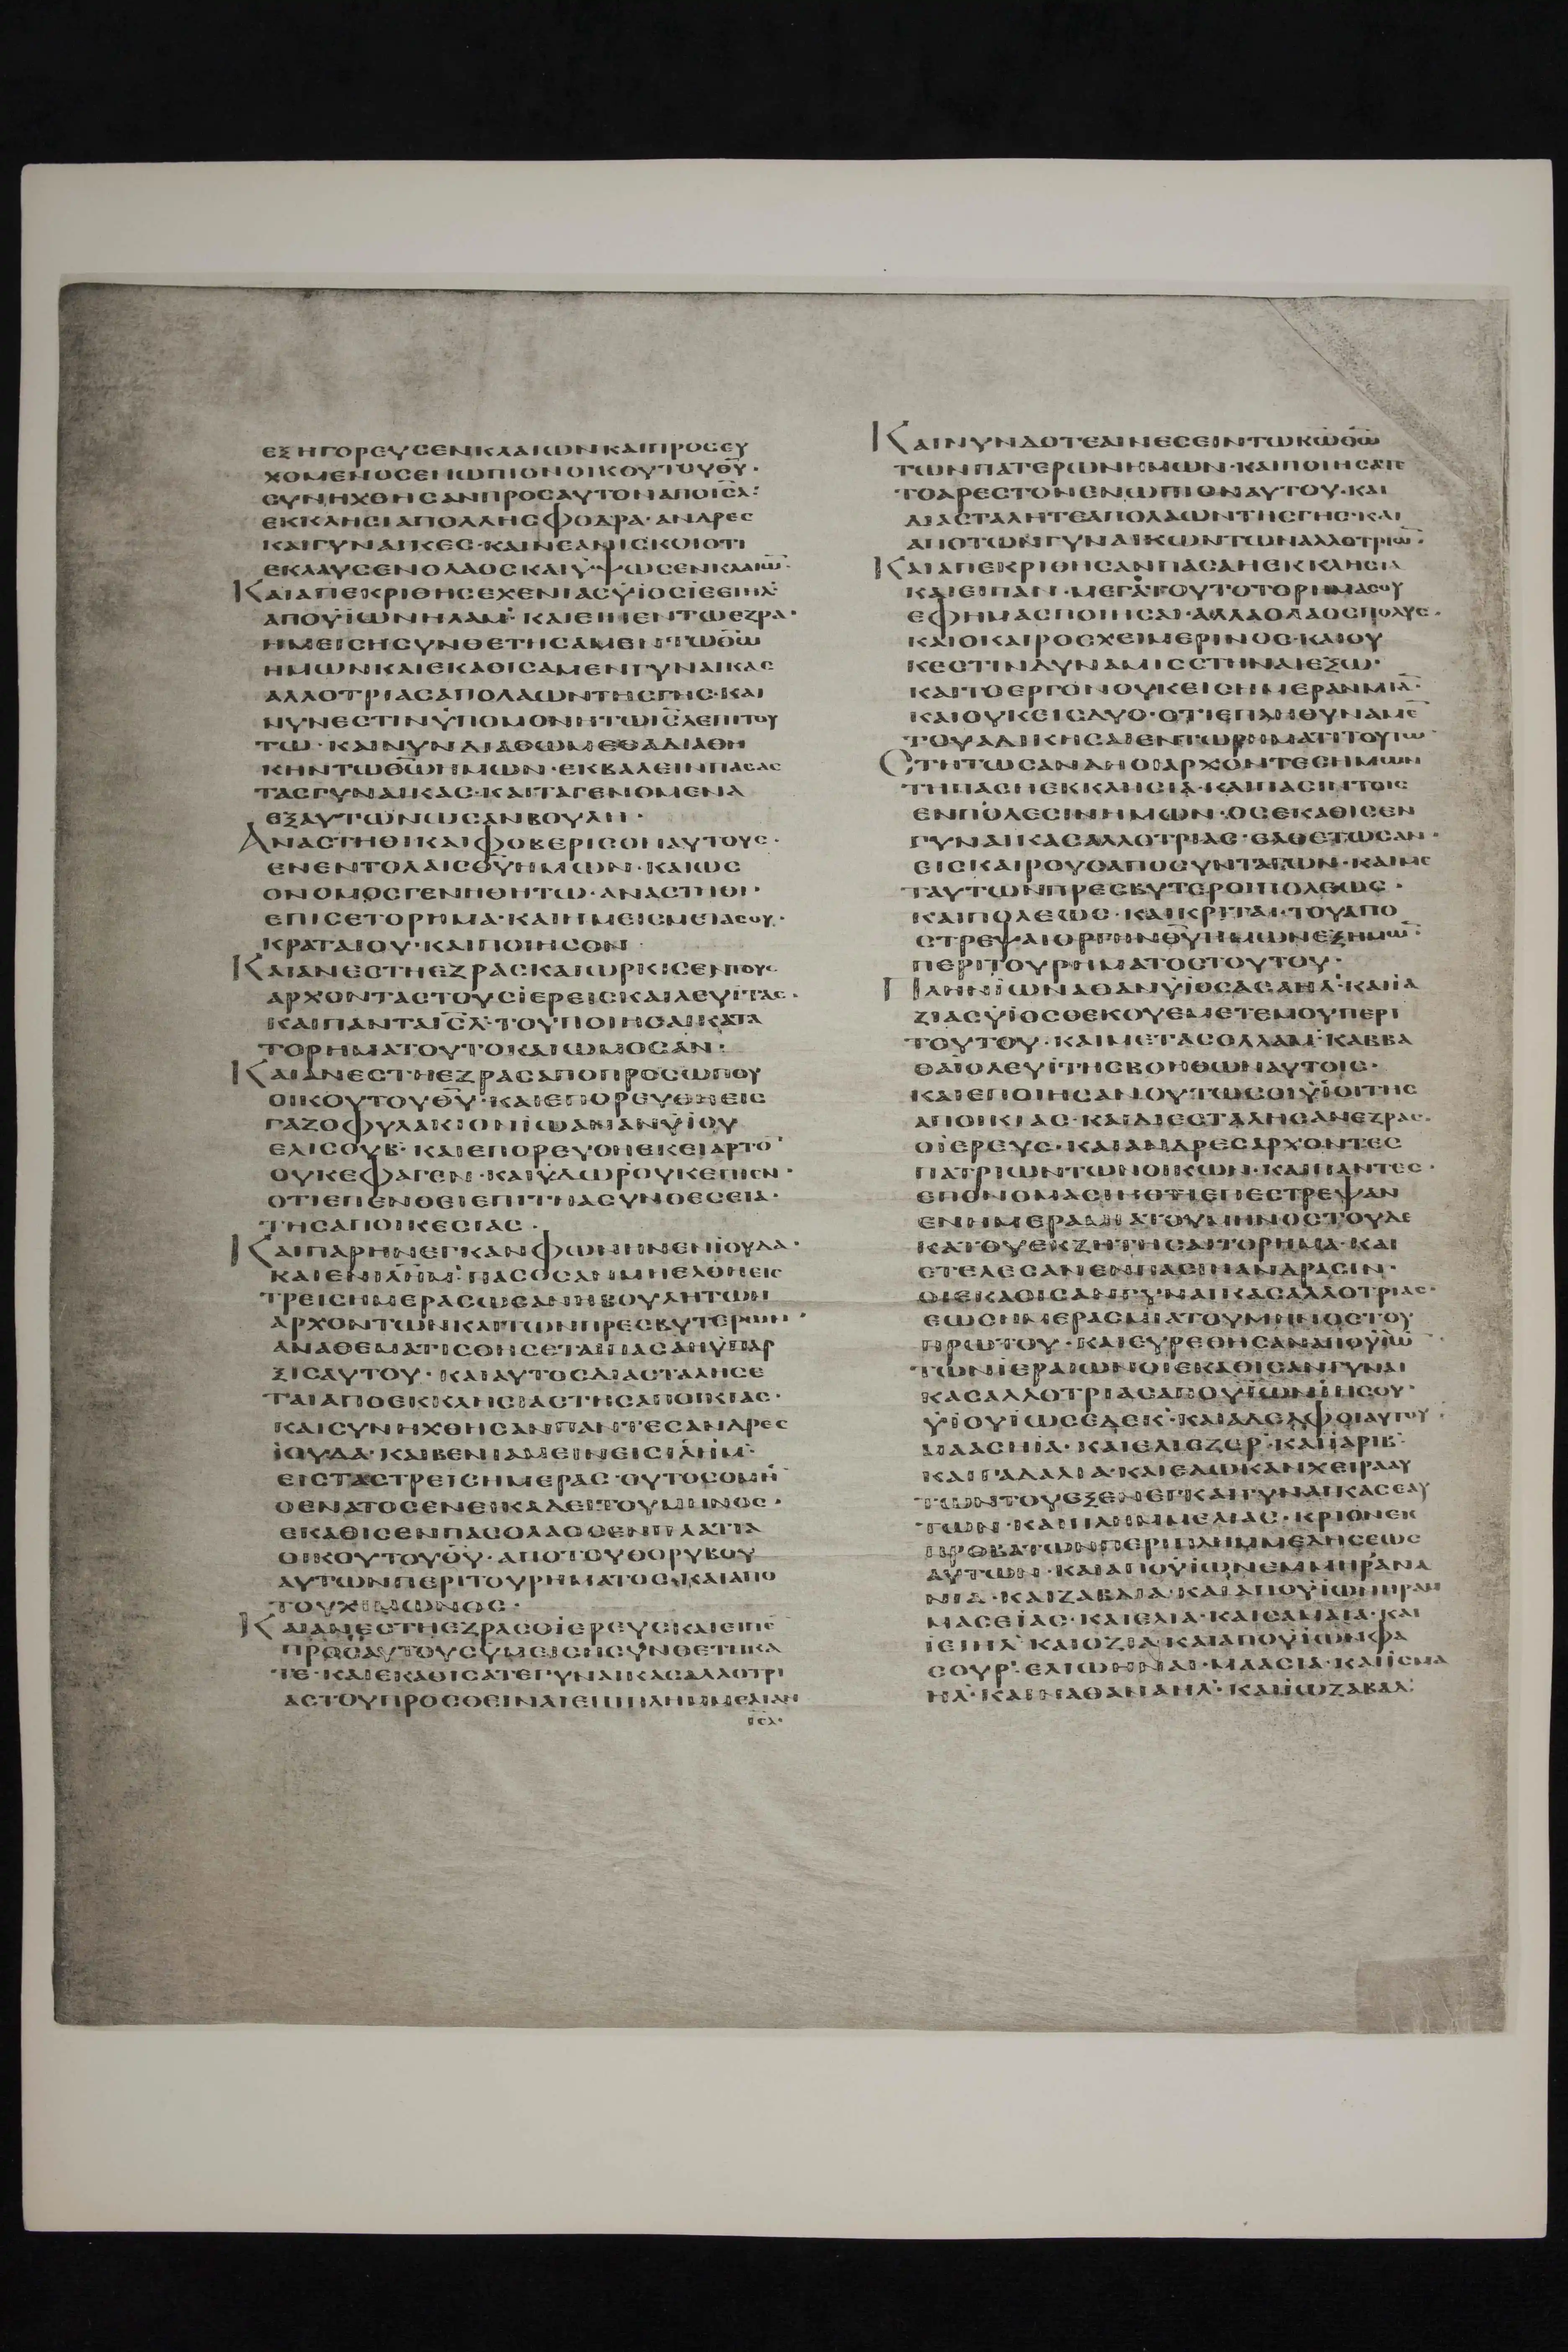 ΕΞΗΓΟΡΕΥΣΕΝΚΛΑΙΩΝΚΑΙΠΡΟΣΕΥ
ΧΟΜΕΝΟΣΕΝΩΠΙΟΝΟΙΚΟΥΤΟΥΘ̅Υ̅·
ΣΥΝΗΧΘΗΣΑΝΠΡΟΣΑΥΤΟΝΑΠΟΙ̅Σ̅Λ̅·
ΕΚΚΛΗΣΙΑΠΟΛΛΗΣΦΟΔΡΑ·ΑΝΔΡΕΣ
ΚΑΙΓΥΝΑΙΚΕΣ·ΚΑΙΝΕΑΝΙΣΚΟΙΟΤΙ
ΕΚΛΑΥΣΕΝΟΛΑΟΣΚΑΙΫΨΩΣΕΝΚΛΑΙΩ̅·
ΚΑΙΑΠΕΚΡΙΘΗΣΕΧΕΝΙΑΣΫΙΟΣΪΕΕΙΗΛ·
ΑΠΟΫΙΩΝΗΛΑΜ·ΚΑΙΕΙΠΕΝΤΩΕΖΡΑ·
ΗΜΕΙΣΗΣΥΝΘΕΤΗΣΑΜΕΝΤΩΘ̅Ω̅
ΗΜΩΝΚΑΙΕΚΑΘΙΣΑΜΕΝΓΥΝΑΙΚΑΣ
ΑΛΛΟΤΡΙΑΣΑΠΟΛΑΩΝΤΗΣΓΗΣ·ΚΑΙ
ΝΥΝΕΣΤΙΝΫΠΟΜΟΝΗΤΩΙ̅Σ̅Λ̅ΕΠΙΤΟΥ
ΤΩ·ΚΑΙΝΥΝΔΙΑΘΩΜΕΘΑΔΙΑΘΗ
ΚΗΝΤΩΘ̅Ω̅ΗΜΩΝ·ΕΚΒΑΛΕΙΝΠΑΣΑΣ
ΤΑΣΓΥΝΑΙΚΑΣ·ΚΑΙΤΑΓΕΝΟΜΕΝΑ
ΕΞΑΥΤΩΝΩΣΑΝΒΟΥΛΗ·
ΑΝΑΣΤΗΘΙΚΑΙΦΟΒΕΡΙΣΟΝΑΥΤΟΥΣ·
ΕΝΕΝΤΟΛΑΙΣΘ̅Υ̅ΗΜΩΝ·ΚΑΙΩΣ
ΟΝΟΜΟΣΓΕΝΗΘΗΤΩ·ΑΝΑΣΤΗΘΙ·
ΕΠΙΣΕΤΟΡΗΜΑ·ΚΑΙΗΜΕΙΣΜΕΤΑΣΟΥ·
ΚΡΑΤΑΙΟΥ·ΚΑΙΠΟΙΗΣΟΝ·
ΚΑΙΑΝΕΣΤΗΕΖΡΑΣΚΑΙΩΡΚΙΣΕΝΤΟΥΣ
ΑΡΧΟΝΤΑΣΤΟΥΣΪΕΡΕΙΣΚΑΙΛΕΥΪΤΑΣ·
ΚΑΙΠΑΝΤΑΙ̅Σ̅Λ̅·ΤΟΥΠΟΙΗΣΑΙΚΑΤΑ
ΤΟΡΗΜΑΤΟΥΤΟΚΑΙΩΜΟΣΑΝ·
ΚΑΙΑΝΕΣΤΗΕΖΡΑΣΑΠΟΠΡΟΣΩΠΟΥ
ΟΙΚΟΥΤΟΥΘ̅Υ̅·ΚΑΙΕΠΟΡΕΥΘΗΕΙΣ
ΓΑΖΟΦΥΛΑΚΙΟΝΪΩΑΝΑΝΫΙΟΥ
ΕΛΙΣΟΥΒ·ΚΑΙΕΠΟΡΕΥΘΗΕΚΕΙΑΡΤΟ̅
ΟΥΚΕΦΑΓΕΝ·ΚΑΙΫΔΩΡΟΥΚΕΠΙΕΝ·
ΟΤΙΕΠΕΝΘΕΙΕΠΙΤΗΑΣΥΝΘΕΣΕΙΑ·
ΤΗΣΑΠΟΙΚΕΣΙΑΣ·
ΚΑΙΠΑΡΗΝΕΓΚΑΝΦΩΝΗΝΕΝΪΟΥΔΑ·
ΚΑΙΕΝΙ̅Λ̅Η̅Μ̅·ΠΑΣΟΣΑΝΜΗΕΛΘΗΕΙΣ
ΤΡΕΙΣΗΜΕΡΑΣΩΣΑΝΗΒΟΥΛΗΤΩΝ
ΑΡΧΟΝΤΩΝΚΑΙΤΩΝΠΡΕΣΒΥΤΕΡΩΝ·
ΑΝΑΘΕΜΑΤΙΣΘΗΣΕΤΑΙΠΑΣΑΗΫΠΑΡ
ΞΙΣΑΥΤΟΥ·ΚΑΙΑΥΤΟΣΔΙΑΣΤΑΛΗΣΕ
ΤΑΙΑΠΟΕΚΚΛΗΣΙΑΣΤΗΣΑΠΟΙΚΙΑΣ·
ΚΑΙΣΥΝΗΧΘΗΣΑΝΠΑΝΤΕΣΑΝΔΡΕΣ
ΪΟΥΔΑ·ΚΑΙΒΕΝΙΑΜΕΙΝΕΙΣΙ̅Λ̅Η̅Μ̅·
ΕΙΣΤΑΣΤΡΕΙΣΗΜΕΡΑΣ·ΟΥΤΟΣΟΜΗ̅
ΟΕΝΑΤΟΣΕΝΕΙΚΑΔΕΙΤΟΥΜΗΝΟΣ·
ΕΚΑΘΙΣΕΝΠΑΣΟΛΑΟΣΕΝΠΛΑΤΙΑ
ΟΙΚΟΥΤΟΥΘ̅Υ̅·ΑΠΟΤΟΥΘΟΡΥΒΟΥ
ΑΥΤΩΝΠΕΡΙΤΟΥΡΗΜΑΤΟΣ·ΚΑΙΑΠΟ
ΤΟΥΧΙΜΩΝΟΣ·
ΚΑΙΑΝΕΣΤΗΕΖΡΑΣΟΪΕΡΕΥΣΚΑΙΕΙΠΕ̅
ΠΡΟΣΑΥΤΟΥΣΫΜΕΙΣΗΣΥΝΘΕΤΗΚΑ
ΤΕ·ΚΑΙΕΚΑΘΙΣΑΤΕΓΥΝΑΙΚΑΣΑΛΛΟΤΡΙ
ΑΣΤΟΥΠΡΟΣΘΕΙΝΑΙΕΠΙΠΛΗΜΜΕΛΙΑΝ
Ι̅Σ̅Λ̅·
ΚΑΙΝΥΝΔΟΤΕΑΙΝΕΣΕΙΝΤΩΚ̅Ω̅Θ̅Ω̅
ΤΩΝΠΑΤΕΡΩΝΗΜΩΝ·ΚΑΙΠΟΙΗΣΑΤΕ
ΤΟΑΡΕΣΤΟΝΕΝΩΠΙΟΝΑΥΤΟΥ·ΚΑΙ
ΔΙΑΣΤΑΛΗΤΕΑΠΟΛΑΩΝΤΗΣΓΗΣ·ΚΑΙ
ΑΠΟΤΩΝΓΥΝΑΙΚΩΝΤΩΝΑΛΛΟΤΡΙΩ̅·
ΚΑΙΑΠΕΚΡΙΘΗΣΑΝΠΑΣΑΗΕΚΚΛΗΣΙΑ
ΚΑΙΕΙΠΑΝ·ΜΕΓΑΤΟΥΤΟΤΟΡΗΜΑΣΟΥ
ΕΦΗΜΑΣΠΟΙΗΣΑΙ·ΑΛΛΑΟΛΑΟΣΠΟΛΥΣ·
ΚΑΙΟΚΑΙΡΟΣΧΕΙΜΕΡΙΝΟΣ·ΚΑΙΟΥ
ΚΕΣΤΙΝΔΥΝΑΜΙΣΣΤΗΝΑΙΕΞΩ·
ΚΑΙΤΟΕΡΓΟΝΟΥΚΕΙΣΗΜΕΡΑΝΜΙΑ̅·
ΚΑΙΟΥΚΕΙΣΔΥΟ·ΟΤΙΕΠΛΗΘΥΝΑΜΕ̅
ΤΟΥΑΔΙΚΗΣΑΙΕΝΤΩΡΗΜΑΤΙΤΟΥΤΩ
ΣΤΗΤΩΣΑΝΔΗΟΙΑΡΧΟΝΤΕΣΗΜΩΝ
ΤΗΠΑΣΗΕΚΚΛΗΣΙΑ·ΚΑΙΠΑΣΙΝΤΟΙΣ
ΕΝΠΟΛΕΣΙΝΗΜΩΝ·ΟΣΕΚΑΘΙΣΕΝ
ΓΥΝΑΙΚΑΣΑΛΛΟΤΡΙΑΣ·ΕΛΘΕΤΩΣΑΝ·
ΕΙΣΚΑΙΡΟΥΣΑΠΟΣΥΝΤΑΓΩΝ·ΚΑΙΜΕ
ΤΑΥΤΩΝΠΡΕΣΒΥΤΕΡΟΙΠΟΛΕΩΣ·
ΚΑΙΠΟΛΕΩΣ·ΚΑΙΚΡΙΤΑΙ·ΤΟΥΑΠΟ
ΣΤΡΕΨΑΙΟΡΓΗΝΘ̅Υ̅ΗΜΩΝΕΞΗΜΩ̅·
ΠΕΡΙΤΟΥΡΗΜΑΤΟΣΤΟΥΤΟΥ·
ΠΛΗΝΪΩΝΑΘΑΝΫΙΟΣΑΣΑΗΛ·ΚΑΙΪΑ
ΖΙΑΣΫΙΟΣΘΕΚΟΥΕΜΕΤΕΜΟΥΠΕΡΙ
ΤΟΥΤΟΥ·ΚΑΙΜΕΤΑΣΟΛΛΑΜ·ΚΑΒΒΑ
ΘΑΙΟΛΕΥΪΤΗΣΒΟΗΘΩΝΑΥΤΟΙΣ·
ΚΑΙΕΠΟΙΗΣΑΝΟΥΤΩΣΟΙΫΙΟΙΤΗΣ
ΑΠΟΙΚΙΑΣ·ΚΑΙΔΙΕΣΤΑΛΗΣΑΝΕΖΡΑΣ·
ΟΪΕΡΕΥΣ·ΚΑΙΑΝΔΡΕΣΑΡΧΟΝΤΕΣ
ΠΑΤΡΙΩΝΤΩΝΟΙΚΩΝ·ΚΑΙΠΑΝΤΕΣ·
ΕΠΟΝΟΜΑΣΙΝΟΤΙΕΠΕΣΤΡΕΨΑΝ
ΕΝΗΜΕΡΑΜΙΑΤΟΥΜΗΝΟΣΤΟΥΔΕ
ΚΑΤΟΥΕΚΖΗΤΗΣΑΙΤΟΡΗΜΑ·ΚΑΙ
ΕΤΕΛΕΣΑΝΕΝΠΑΣΙΝΑΝΔΡΑΣΙΝ·
ΟΙΕΚΑΘΙΣΑΝΓΥΝΑΙΚΑΣΑΛΛΟΤΡΙΑΣ·
ΕΩΣΗΜΕΡΑΣΜΙΑΤΟΥΜΗΝΟΣΤΟΥ
ΠΡΩΤΟΥ·ΚΑΙΕΥΡΕΘΗΣΑΝΑΠΟΫΙΩ̅
ΤΩΝΪΕΡΑΙΩΝΟΙΕΚΑΘΙΣΑΝΓΥΝΑΙ
ΚΑΣΑΛΛΟΤΡΙΑΣΑΠΟΫΙΩΝΪΗΣΟΥ·
ΫΙΟΥΪΩΣΕΔΕΚ·ΚΑΙΑΔΕΛΦΟΙΑΥΤΟΥ·
ΜΑΑΣΗΙΑ·ΚΑΙΕΛΙΕΖΕΡ·ΚΑΙΪΑΡΙΒ·
ΚΑΙΓΑΔΑΛΙΑ·ΚΑΙΕΔΩΚΑΝΧΕΙΡΑΑΥ
ΤΩΝΤΟΥΕΞΕΝΕΓΚΑΙΓΥΝΑΙΚΑΣΕΑΥ
ΤΩΝ·ΚΑΙΠΛΗΜΜΕΛΙΑΣ·ΚΡΙΟΝΕΚ
ΠΡΟΒΑΤΩΝΠΕΡΙΠΛΗΜΜΕΛΗΣΕΩΣ
ΑΥΤΩΝ·ΚΑΙΑΠΟΫΙΩΝΕΜΜΗΡΑΝΑ
ΝΙΑ·ΚΑΙΖΑΒΔΙΑ·ΚΑΙΑΠΟΫΙΩΝΗΡΑΜ
ΜΑΣΕΙΑΣ·ΚΑΙΕΛΙΑ·ΚΑΙΣΑΜΑΙΑ·ΚΑΙ
ΪΕΙΗΛ·ΚΑΙΟΖΙΑ·ΚΑΙΑΠΟΫΙΩΝΦΑ
ΣΟΥΡ·ΕΛΙΩΗΝΑΙ·ΜΑΑΣΙΑ·ΚΑΙΪΣΜΑ
ΗΛ·ΚΑΙΝΑΘΑΝΑΗΛ·ΚΑΙΪΩΖΑΒΑΔ·